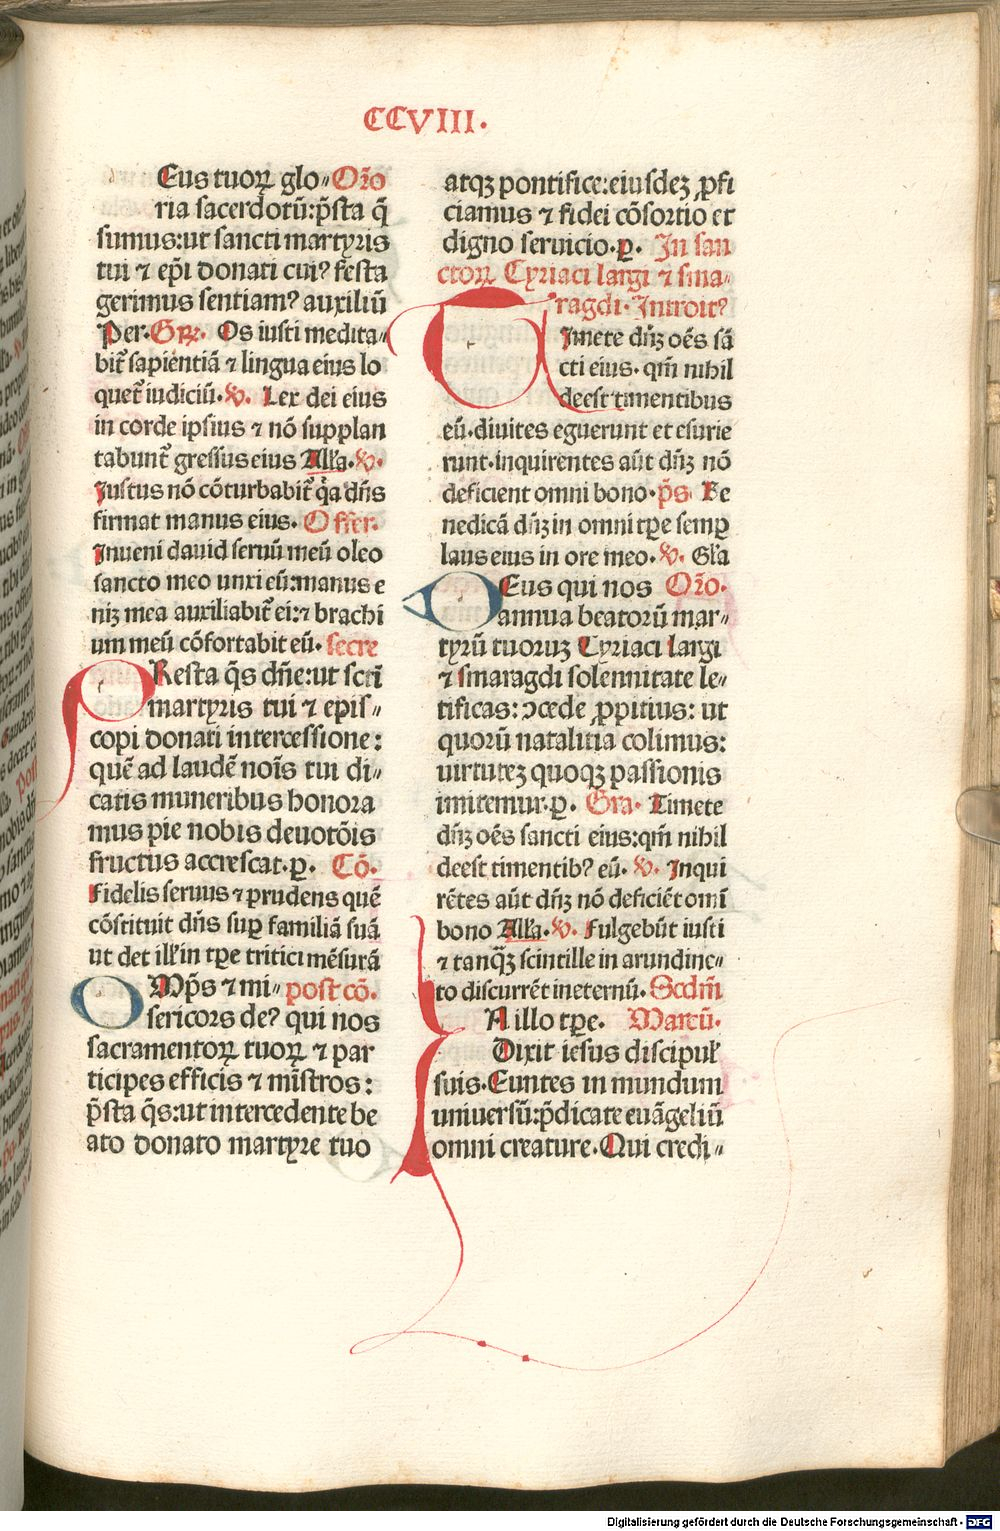 CCVIII.
Eus tuoꝝ glo⸗ Oro̅
ria sacerdotu̅:p̅sta q̅
sumus:ut sancti martyris
tui ⁊ ep̅i donati cuiꝰ festa
gerimus sentiamꝰ auxiliu̅
Per. Gꝝ. Os iusti medita⸗
bit᷑ sapientia̅ ⁊ lingua eius lo
quet᷑ iudiciu̅. v. Lex dei eius
in corde ipsius ⁊ no̅ supplan
tabunt᷑ gressus eius Alla. v.
Justus no̅ co̅turbabit᷑ q̇a dn̅s
firmat manus eius. Offer.
Inueni dauid seruu̅ meu̅ oleo
sancto meo unxi eu̅:manus e
niꝫ mea auxiliabit᷑ ei:⁊ brachi
um meu̅ co̅fortabit eu̅. secre
PResta q̅s dn̅e:ut scti̅
martyris tui ⁊ epis⸗
copi donati intercessione:
que̅ ad laude̅ no̅is tui di⸗
catis muneribus honora
mus pie nobis deuoto̅is
fructus accrescat.ꝑ. Co̅.
Fidelis seruus ⁊ prudens que̅
co̅stituit dn̅s suꝑ familia̅ sua̅
ut det ill̕ in tꝑe tritici me̅sura̅
OMp̅s ⁊ mi⸗ post co̅.
sericors deꝰ qui nos
sacramentoꝝ tuoꝝ ⁊ par
ticipes efficis ⁊ mi̅stros:
p̅sta q̅s:ut intercedente be
ato donato martyre tuo
atqꝫ pontifice:eiusdeꝫ ꝓfi
ciamus ⁊ fidei co̅sortio et
digno seruicio.ꝑ. In san
ctoꝝ Cyriaci largi ⁊ sma⸗
ragdi. Introitꝰ
TImete dn̅ꝫ oe̅s sa̅
cti eius. qm̅ nihil
deest timentibus
eu̅.diuites eguerunt et esurie
runt.inquirentes au̅t dn̅ꝫ no̅
deficient omni bono. p̅s Be
nedica̅ dn̅ꝫ in omni tꝑe semꝑ
laus eius in ore meo. v. Gl̕a
DEus qui nos Oro̅.
annua beatoru̅ mar⸗
tyru̅ tuoruꝫ Cyriaci Largi
⁊ smaragdi solennitate le⸗
tificas: ꝯcede ꝓpitius: ut
quoru̅ natalitia colimus:
uirtuteꝫ quoqꝫ passionis
imitemur.ꝑ. Gra. Timete
dn̅ꝫ oe̅s sancti eius:qm̅ nihil
deest timentibꝰ eu̅. v. Inqui
re̅tes au̅t dn̅ꝫ no̅ deficie̅t omi̅
bono Alla. v. Fulgebu̅t iusti
⁊ tanq̅ꝫ scintille in arundine⸗
to discurre̅t ineternu̅. Scdm̅
IN illo tꝑe. Marcu̅.
Dixit iesus discipul̕
suis.Euntes in mundum
uniuersu̅:p̅dicate eua̅geliu̅
omni creature.Qui credi⸗
Digitalisierung gefördert durch die Deutsche Forschungsgemeinschaft - DFG